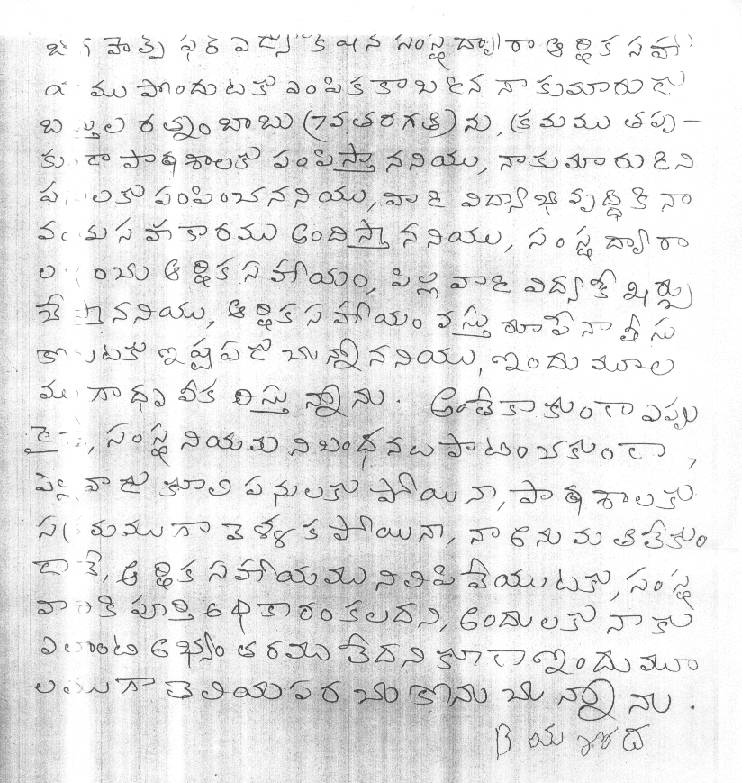 స్పర్ ఎడ్యుకేషన్ సంస్థ ద్వారా ఆర్థిక సహా
యము పొందుటకు ఎంపిక కాబడిన నా కుమారుడు
బత్తుల రత్నంబాబు (7వ తరగతి) ను, క్రమము తప్ప-
కుండా పాఠశాలకు పంపిస్తాననియు, నా కుమారుడిని
పనులకు పంపించననియు, వాడి విద్యాభివృద్ధికి నా
వంతు సహకారము అందిస్తాననియు, సంస్థ ద్వారా
ఆర్థిక సహాయం, పిల్లవాడి విద్యకే ఖర్చు
చేస్తాననియు, ఆర్థిక సహాయం వస్తు రూపేనా తీసు
కొనుటకు ఇష్టపడుచున్నాననియు, ఇందుమూల
ముగా ధృవీకరిస్తున్నాను. అంతేకాకుండా ఎప్పు
డైనా, సంస్థ నియమ నిబంధనలు పాటించకుండా,
పిల్లవాడు కూలి పనులకు పోయినా, పాఠశాలకు
సక్రమముగా వెళ్ళక పోయినా, నా అనుమతి లేకుం
డానే, ఆర్థిక సహాయము నిలిపివేయుటకు, సంస్థ
వారికి పూర్తి అధికారం కలదని, అందులకు నాకు
ఎలాంటి అభ్యంతరము లేదని కూడా ఇందుమూ
లముగా తెలియపరచుకొనుచున్నాను.
B యశోద